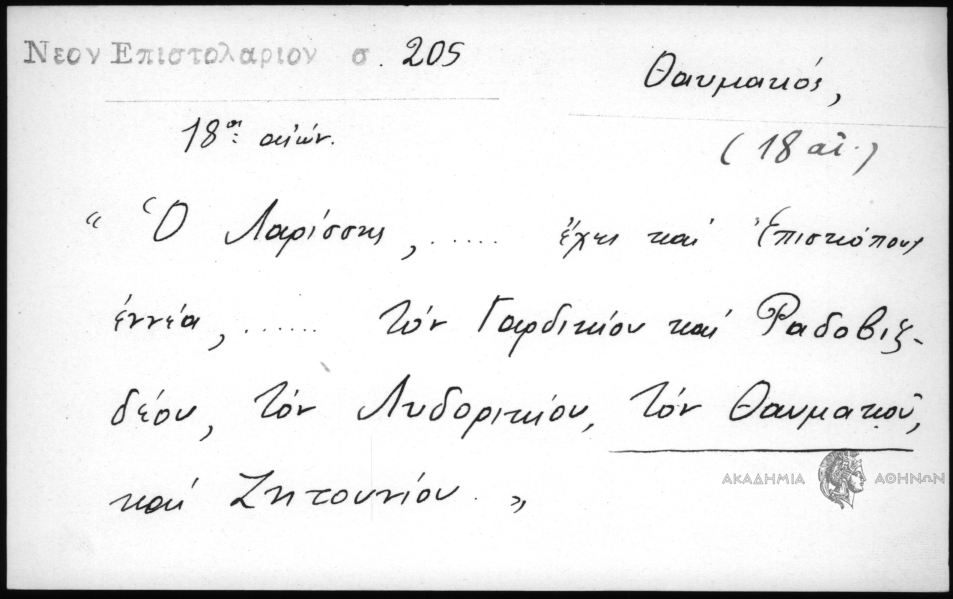 Νεον Επιστολαριον σ. 205
Θαυμακός,
18ος: αἰών.
(18 αἰ.)
“ Ὁ Λαρίσσης, ...... ἔχει καί Ἐπισκόπους
ἐννέα, ...... τόν Γαρδικίου καί Ραδοβιζ-
δέου, τόν Λυδορικίου, τόν Θαυμακοῦ,
καί Ζητουνίου. „
ΑΚΑΔΗΜΙΑ ΑΘΗΝΩΝ